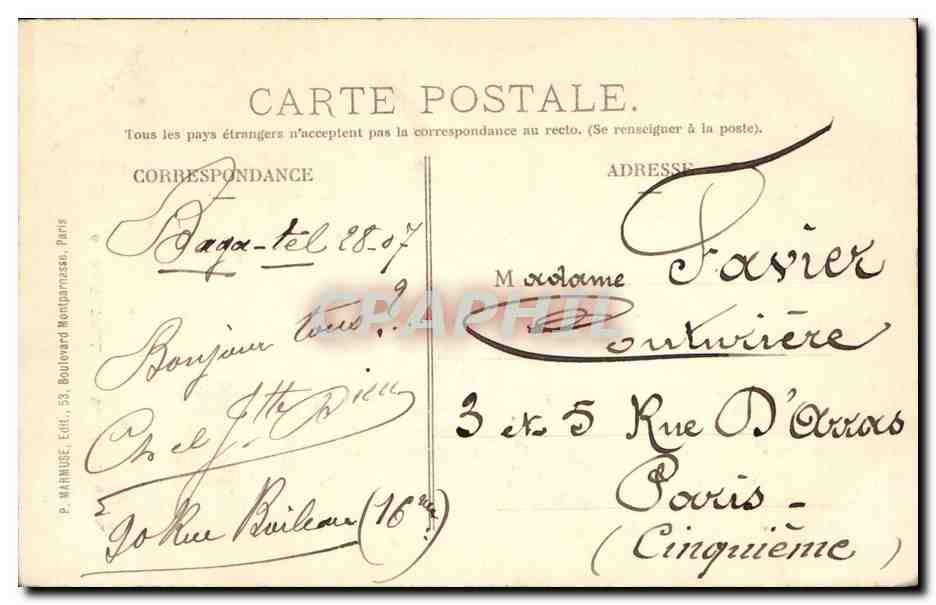 CARTE POSTALE.
Tous les pays étrangers n'acceptent pas la correspondance au recto. (Se renseigner à la poste).
CORRESPONDANCE
Baga-tel 28-07
Bonjour tous
Ch et
90 Rue Boileau (16me)
ADRESSE
Madame Favier
Couturière
3 et 5 Rue D'Arras
Paris -
(Cinquième)
P. MARMUSE, Edit., 53, Boulevard Montparnasse, Paris
CPAPHIL